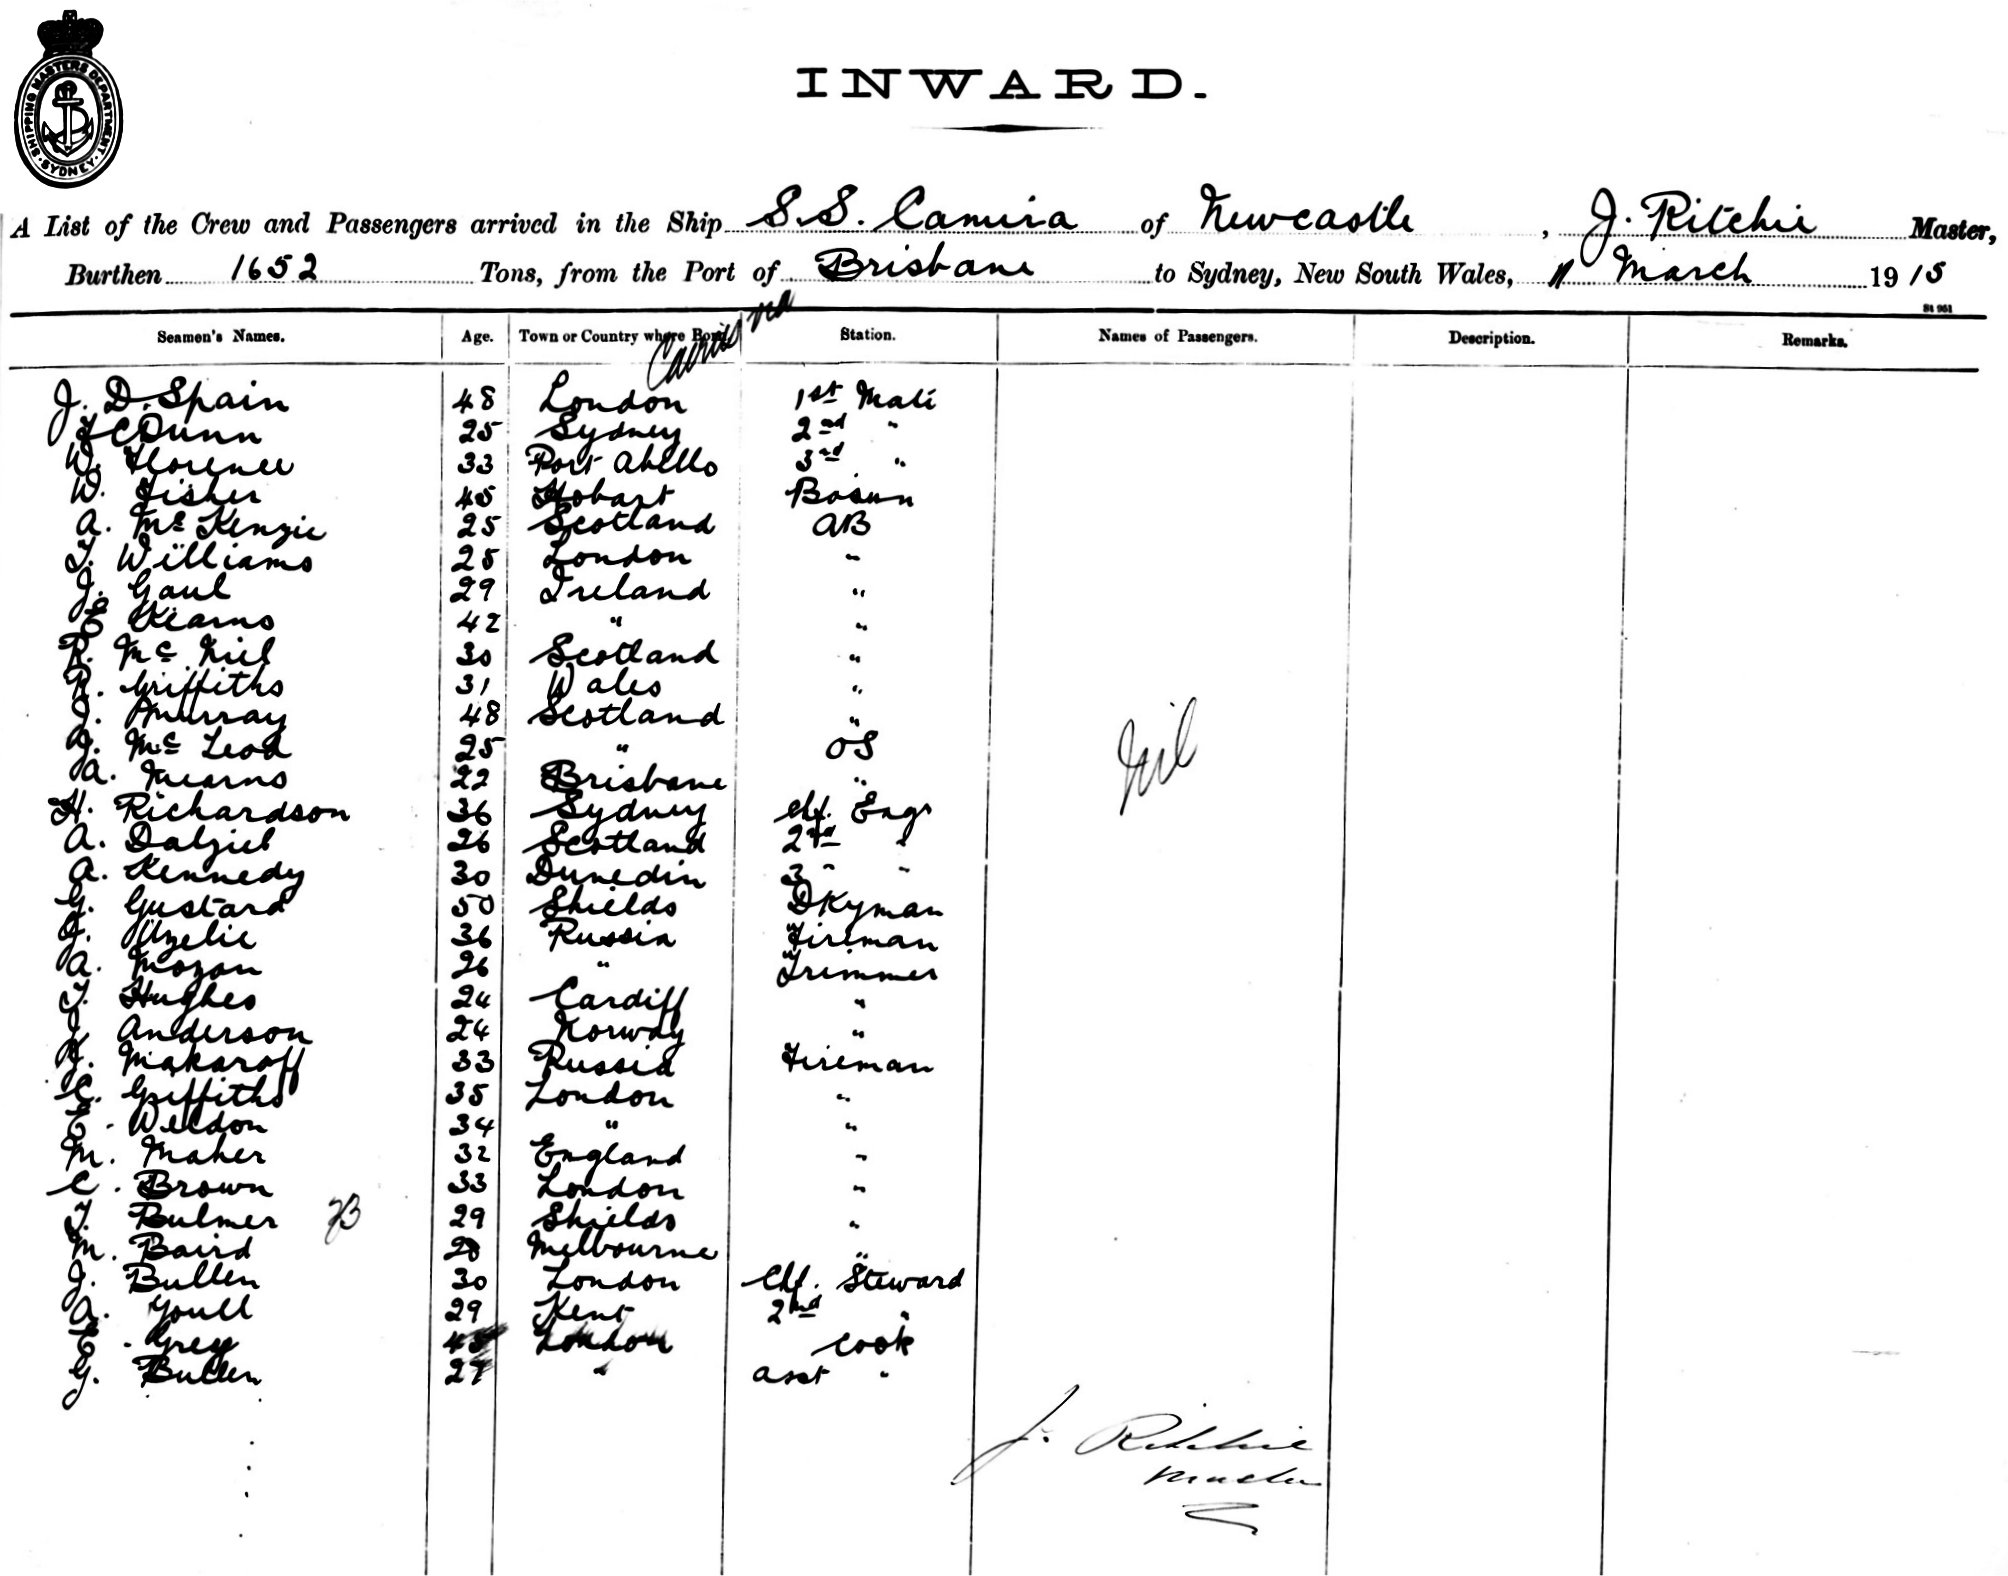 SHIPPING MASTERS DEPARTMENT. SYDNEY.
INWARD.
A List of the Crew and Passengers arrived in the Ship S.S. Camira of Newcastle, J. Ritchie Master,
Burthen 1652 Tons, from the Port of Brisbane to Sydney, New South Wales, 11 March 1915
St 961
Seamen's Names. Age. Town or Country where Born. Station. Names of Passengers. Description. Remarks.
Cairns via
J. D. Spain 48 London 1st Mate
Dunn 25 Sydney 2nd "
W. Florence 33 Port 3rd "
W. Fisher 45 Hobart Bosun
A. McKenzie 25 Scotland AB
T. Williams 25 London "
J. Gaul 29 Ireland "
E Kearns 42 " "
R. McNeil 30 Scotland "
R. Griffiths 31 Wales "
J. Murray 48 Scotland "
J. McLeod 25 " OS
A. Mearns 22 Brisbane "
Nil
H. Richardson 36 Sydney Chf. Engr
A. Dalziel 26 Scotland 2nd "
A. Kennedy 30 Dunedin 3 " "
G. Gustard 50 Shields DKyman
J. Uzelie 36 Russia Fireman
A. Mozan 26 " Trimmer
T. Hughes 24 Cardiff "
Anderson 24 Norway "
Makaroff 33 Russia Fireman
C. Griffiths 35 London "
E. Weldon 34 " "
M. Maher 32 England "
C. Brown 33 London "
T. Bulmer 29 Shields "
M. Baird 28 Melbourne "
J. Bullen 30 London Chf. Steward
A. Youll 29 Kent 2nd "
E. Grey 45 London Cook
G. Bullen 27 " asst "
J. Ritchie
Master